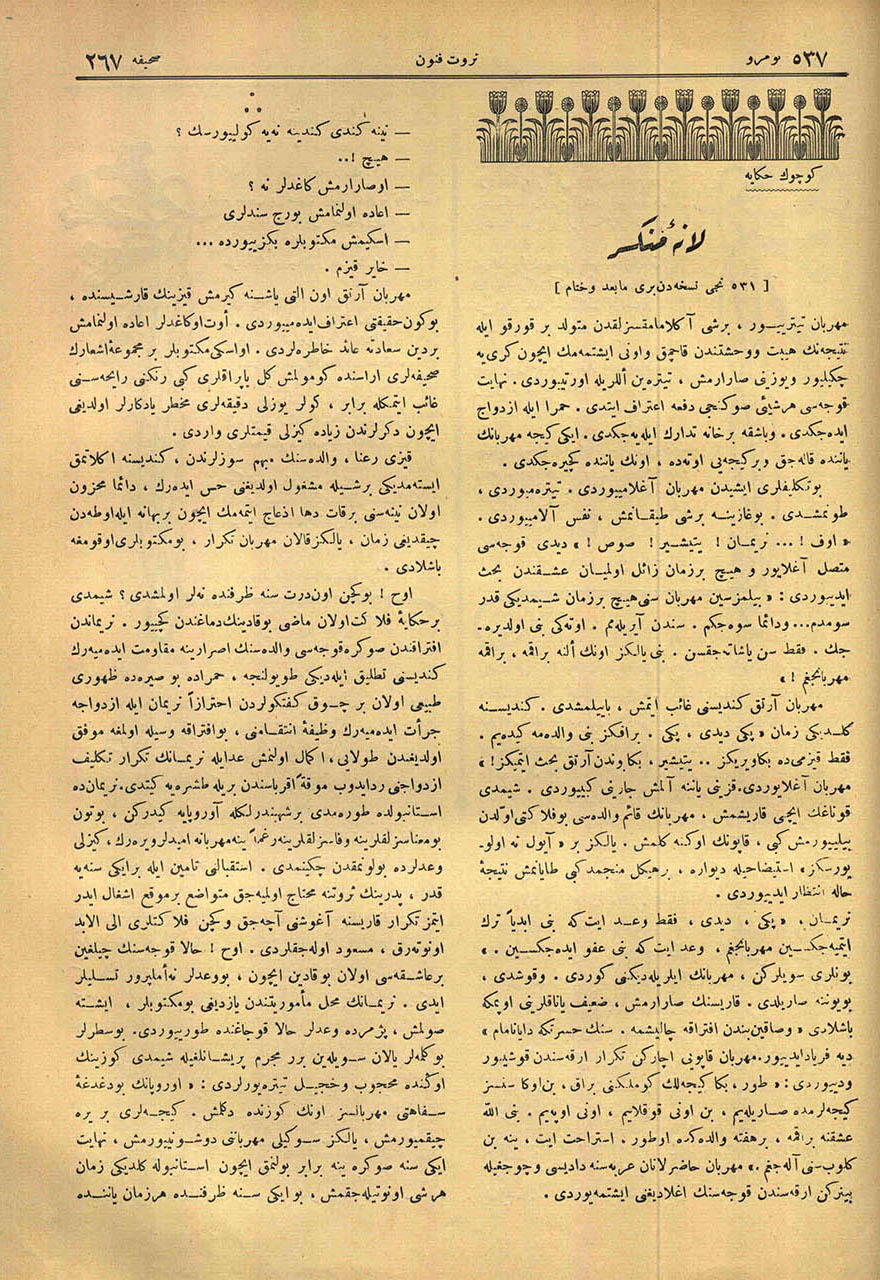 نومرو ٥٣٧
ثروت فنون
صحيفه ٢٦٧
كوچوك حكايه
لانهٔ منكسر
[ ٥٣١ نجى نسخه‌دن‌برى مابعد وختام ]
مهربان تيتره‌ييور ، برشى آكلامامقسزلقدن متولد بر قورقو ايله
نتيجه‌نك هيبت ووحشتندن قاچمق واونى ايشتمه‌مك ايچون كرى‌يه
چكيليور ويوزينى صارارمش ، تيتره‌ين ألل‌ريله اورتييوردى . نهايت
قوجه‌سى هرشيئى صوكنجى دفعه اعتراف ايتدى . حمرا ايله ازدواج
ايده‌جكدى . وباشقه برخانه تدارك ايله‌يه‌جكدى . ايكى كيجه مهربانك
ياننده قاله‌جق وبركيجه‌يى اوته‌ده ، اونك ياننده كچيره‌جكدى .
بوتكليفلرى ايشيدن مهربان آغلاميوردى . تيتره‌ميوردى ،
طوكمشدى . بوغازينه برشى طيقانمش ، نفس آلاميوردى .
« اوف ! ... نريمان ! يتيشير ! صوص ! » ديدى قوجه‌سى
متصل آغلايور و هيچ برزمان زائل اوليمان عشقندن بحث
ايدييوردى : « بيلمزسين مهربان سنى هيچ برزمان شيمديكى قدر
سومدم... ودائما سوه‌جكم . سندن آيريله‌مم . اوته‌كى بنى اولديره-
جك . فقط سن ياشاته‌جقسن . بنى يالكز اونك ألنه براقمه ، براقمه
مهربانجغم ! »
مهربان آرتق كنديسنى غائب ايتمش ، باييلمشدى . كنديسنه
كلديكى زمان « پكى ديدى ، پكى . براقكز بنى والده‌مه كيده‌يم .
فقط قيزمى‌ده بكاويريكز .. يتيشير ، بكابوندن آرتق بحث ايتميكز ! »
مهربان آغلايوردى. قزينى ياننه آلمش چارنى كييوردى . شيمدى
قوناغك ايچى قاريشمش ، مهربانك قائم والده‌سى بوفلاكتى اولدن
بيلييورمش كبى ، قاپونك اوكنه كلمش . يالكز بر « آيول نه اولو-
يورسكز » استيضاحيله ديواره ، برهيكل منجمد كبى طايانمش نتيجهٔ
حاله انتظار ايدييوردى .
نريمان ، « پكى ، ديدى ، فقط وعد ايت كه بنى ابدياً ترك
ايتميه‌جكسين مهربانجغم ، وعد ايت كه بنى عفو ايده‌جكسين . »
بونلرى سويلركن ، مهربانك ايلريله‌ديكنى كوردى . وقوشدى ،
بويوننه صاريلدى . قاريسنك صارارمش ، ضعيف ياناقلرينى اوپمكه
باشلادى « وصاقين‌بندن افتراقه چاليشمه . سنك حسرتكه دايانامام »
ديه فريادايدييور. مهربان قاپونى آچاركن تكرار ارقه‌سندن قوشيور
وديوردى : « طور ، بكا كيجه‌لك كوملكنى براق ، بن‌اوكا سنسز
كيجه‌لرمده صاريله‌يم ، بن اونى قوقلايم ، اونى اوپه‌يم . بنى الله
عشقنه براقمه ، برهفته والده‌كده اوطور . استراحت ايت ، ينه بن
كلوب‌سنى آله‌جغم . » مهربان حاضرلانان عربه‌سنه داديسى وچوجغيله
بينركن ارقه‌سندن قوجه‌سنك اغلاديغنى ايشتمه‌يوردى .
— نينه كندى كندينه نه‌يه كولييورسك ؟
— هيچ !..
— اوصارارمش كاغدلر نه ؟
— اعاده اولنمامش بورج سندلرى
— اسكيمش مكتوبلره بكزييورده ...
— خاير قيزم .
مهربان آرتق اون التى ياشنه كيرمش قيزينك قارشيسنده ،
بوكون‌حقيقتى اعتراف‌ايده‌ميوردى . أوت‌اوكاغدلر اعاده اولنمامش
بردين سعادته عائد خاطره‌لردى . اواسكى‌مكتوبلر بر مجموعهٔ‌اشعارك
صحيفه‌لرى آراسنده كومولمش كل ياپراقلرى كبى رنكنى رايحه‌سنى
غائب ايتمكله برابر ، كولر يوزلى دقيقه‌لرى مخطر يادكارلر اولديغى
ايچون دكرلرندن زياده كيزلى قيمتلرى واردى .
قيزى رعنا ، والده‌سنك مبهم سوزلرندن ، كنديسنه اكلاتمق
ايسته‌مديكى برشيله مشغول اولديغنى حس ايده‌رك ، دائما محزون
اولان نينه‌سنى برقات دها ازعاج ايتمه‌مك ايچون بربهانه ايله‌اوطه‌دن
چيقديغى زمان ، يالكزقالان مهربان تكرار ، بومكتوبلرى‌اوقومغه
باشلادى .
اوح ! بوكچن اون‌درت سنه ظرفنده نه‌لر اولمشدى ؟ شيمدى
برحكايهٔ فلاكت‌اولان ماضى بوقادينك‌دماغندن كچييور . نريماندن
افتراقندن صوكره‌قوجه‌سى والده‌سنك اصرارينه مقاومت ايده‌ميه‌رك
كنديسنى تطليق ايله‌ديكى طويولنجه ، حمراده بو صيره‌ده ظهورى
طبيعى اولان بر چوق كفتكولردن احترازاً نريمان ايله ازدواجه
جرأت ايده‌ميه‌رك وظيفهٔ انتقامنى ، بوافتراقه وسيله اولمغه موفق
اولديغندن طولايى، اكمال اولنمش عدايله نريمانك تكرار تكليف
ازدواجنى ردايدوب موقةً‌اقرباسندن بريله طشره‌يه كيتدى. نريمان‌ده
استانبولده طوره‌مدى برشهبندرلكله آوروپايه كيدركن ، بوتون
بومعناسزلقلرينه وفاسزلقلرينه‌رغماً ينه‌مهربانه اميدلرويره‌رك، كيزلى
وعدلرده بولونمقدن چكينمدى . استقبالنى تأمين ايله برايكى سنه‌يه
قدر ، پدرينك ثروتنه محتاج اولميه‌جق متواضع برموقع اشغال ايدر
ايتمز تكرار قاريسنه آغوشنى آچه‌جق وكچن فلاكتلرى الى الابد
اونوته‌رق ، مسعود اوله‌جقلردى . اوح ! حالا قوجه‌سنك چيلغين
برعاشقه‌سى اولان بوقادين ايچون ، بووعدلر نه‌أملپرور تسليلر
ايدى . نريمانك محل مأموريتندن يازديغى بومكتوبلر ، ايشته
صولمش ، پژمرده وعدلر حالا قوجاغنده طورييوردى. بوسطرلر
بوكلمه‌لر يالان سويله‌ين برر مجرم پريشانلغيله شيمدى كوزينك
اوكنده محجوب وخجيل تيتره‌يورلردى : « اوروپانك بودغدغهٔ
سفاهتى مهربانسز اونك كوزنده دكلمش . كيجه‌لرى بر يره
چيقميورمش ، يالكز سوكيلى مهرباننى دوشونييورمش ، نهايت
ايكى سنه صوكره ينه برابر بولنمق ايچون استانبوله كلديكى زمان
هرشى اونوتيله‌جقمش ، بوايكى سنه ظرفنده هرزمان ياننده